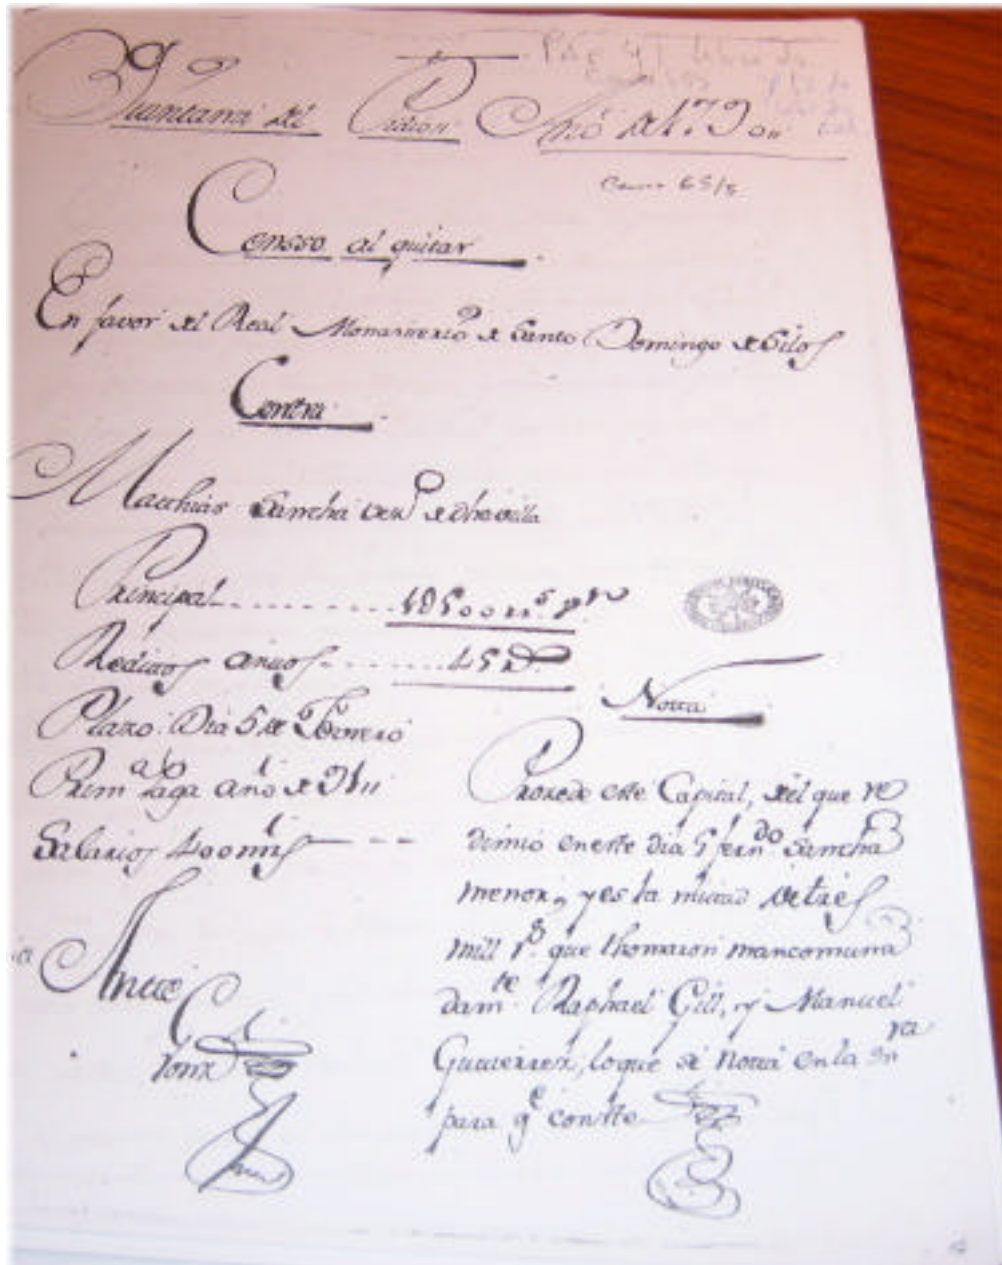 Quintana del Pidio Año de 1790
Censso al quitar
En favor del Real Monasterio de Santo Domingo de Silos
Contra
Matthias Sancha vez.º de dha villa
Principal 1500 rr.s v.n
Reditos anuos 45
Plazo. Dia 5 de Febrero
Prim.a Paga año de 91
Salarios 400 mrs
Nota
Prozede este Capital, del que re
dimio en este dia 5 fern.do Sancha
menor, y es la mitad de tres
mill r.s que thomaron mancomuna
dam.te Raphael Gill, y Manuel
Gutierrez, lo que se Nota en la
para q.e conste
Ante